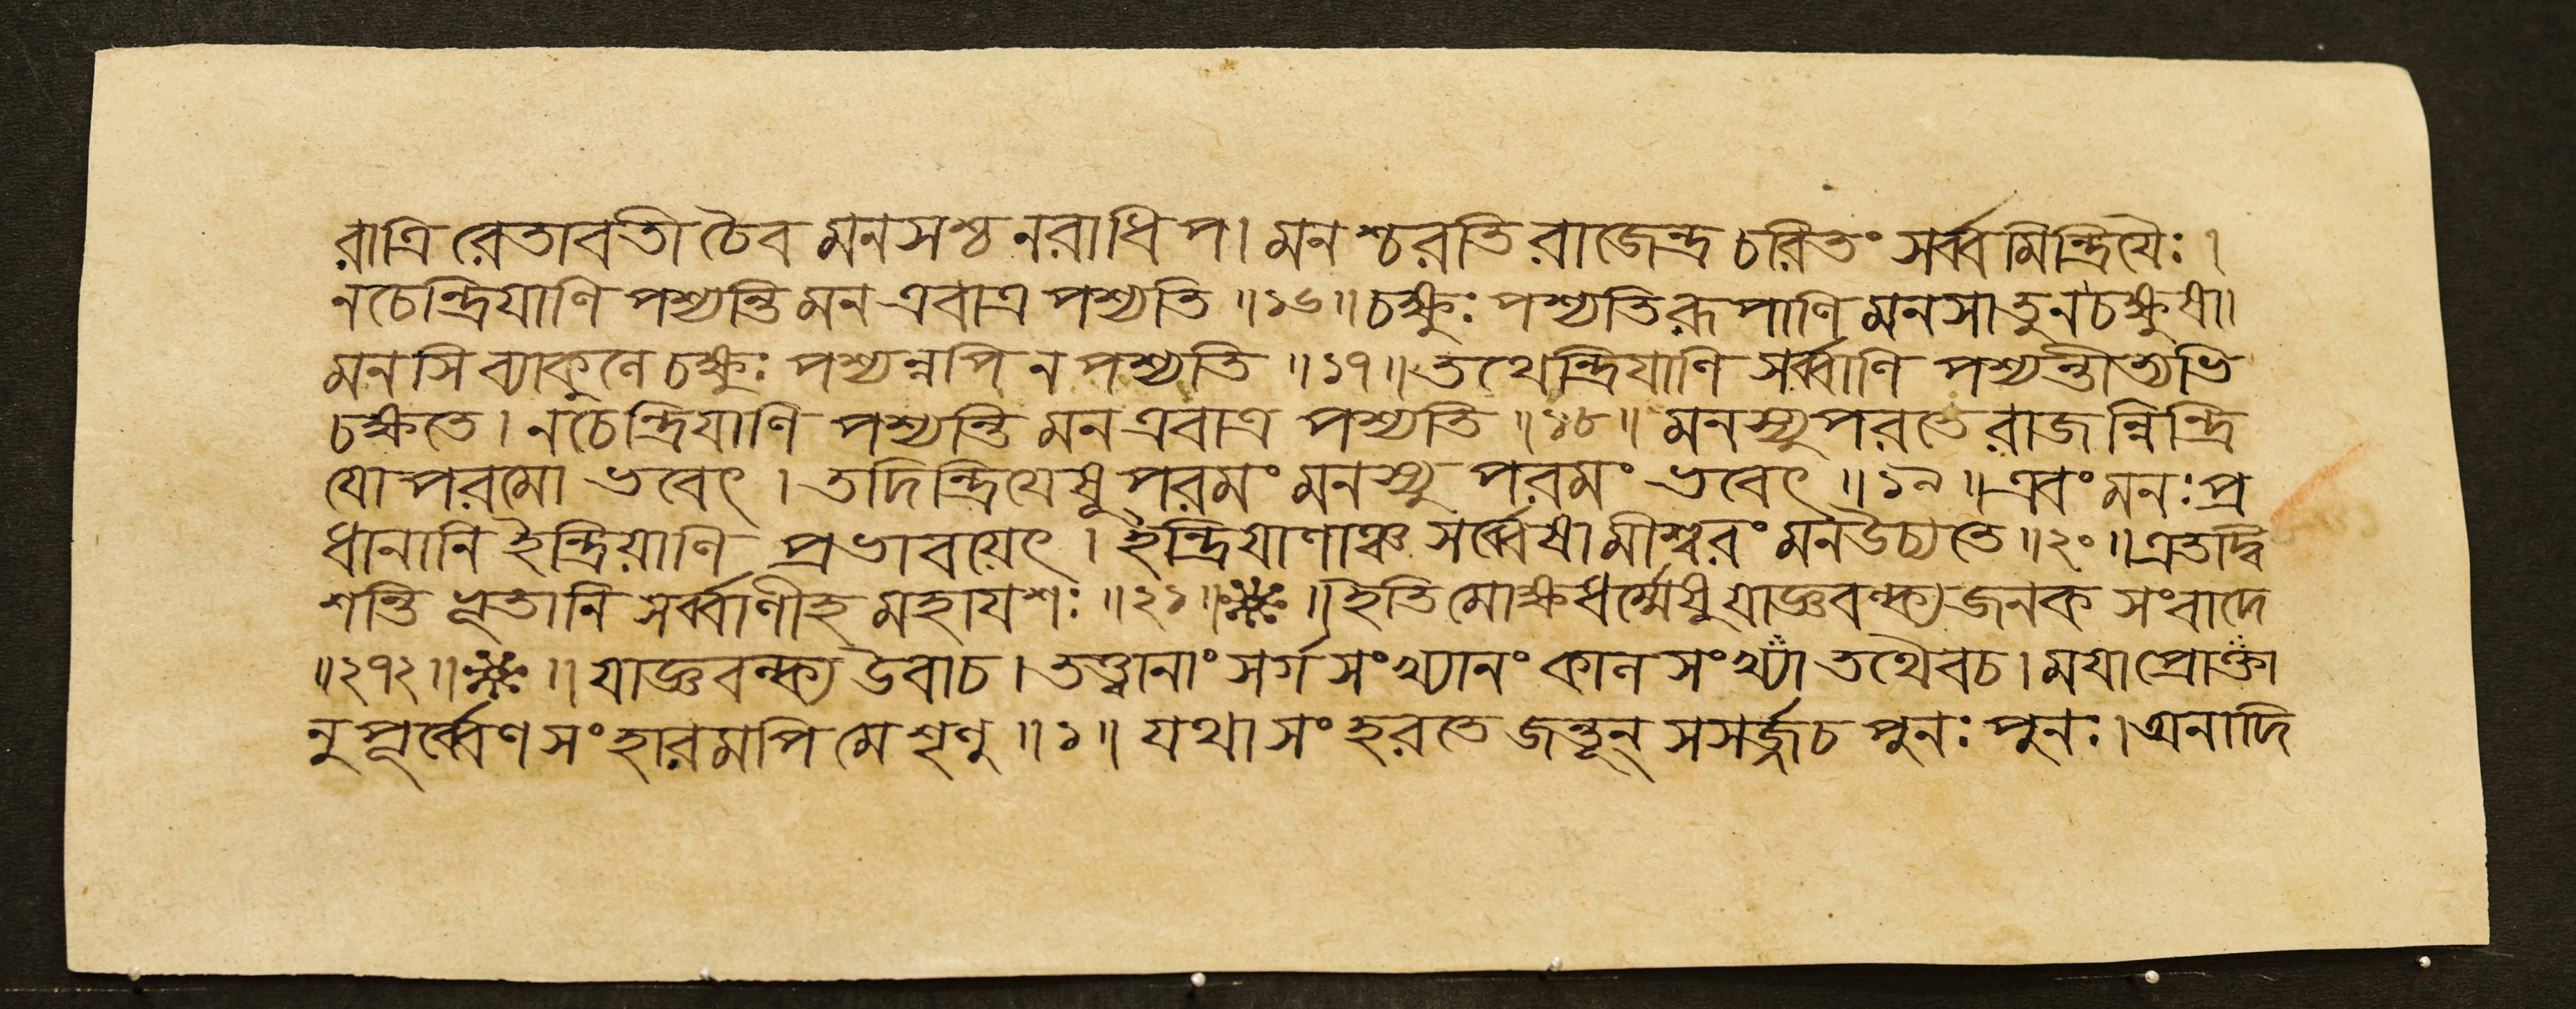 রাত্রিরেতাবতী চৈব মনসশ্চ নরাধিপ। মনশ্চরতি রাজেন্দ্র চরিতং সর্ব্বমিন্দ্রিয়ৈঃ।
নচেন্দ্রিয়াণি পশ্যন্তি মন এবাত্র পশ্যতি ॥১৬॥ চক্ষুঃ পশ্যতি রূপাণি মনসা তু ন চক্ষুষা॥
মনসি ব্যাকুলে চক্ষুঃ পশ্যন্নপি ন পশ্যতি ॥১৭॥ তথেন্দ্রিয়াণি সর্ব্বাণি পশ্যন্তীত্যভি
চক্ষতে। নচেন্দ্রিয়াণি পশ্যন্তি মন এবাত্র পশ্যতি ॥১৮॥ মনস্যুপরতে রাজন্নিন্দ্রি
য়োপরমো ভবেৎ। তদিন্দ্রিয়েষূপরমং মনস্যুপরমং ভবেৎ ॥১৯॥ এবং মনঃপ্র
ধানানি ইন্দ্রিয়াণি প্রভাবয়েৎ। ইন্দ্রিয়াণাঞ্চ সর্ব্বেষামীশ্বরং মন উচ্যতে ॥২০॥ এতদ্বি
শন্তি ভূতানি সর্ব্বাণীহ মহাযশঃ ॥২১॥ ॥ ইতি মোক্ষধর্ম্মেষু যাজ্ঞবল্ক্যজনকসংবাদে
॥২৭২॥ ॥ যাজ্ঞবল্ক্য উবাচ। তত্ত্বানাং সর্গসংখ্যানং কালসংখ্যা তথৈবচ। ময়া প্রোক্তা
নুপূর্ব্বেণ সংহারমপি মে শৃণু ॥১॥ যথা সংহরতে জন্তূন্ সসর্জ্জচ পুনঃ পুনঃ। অনাদি